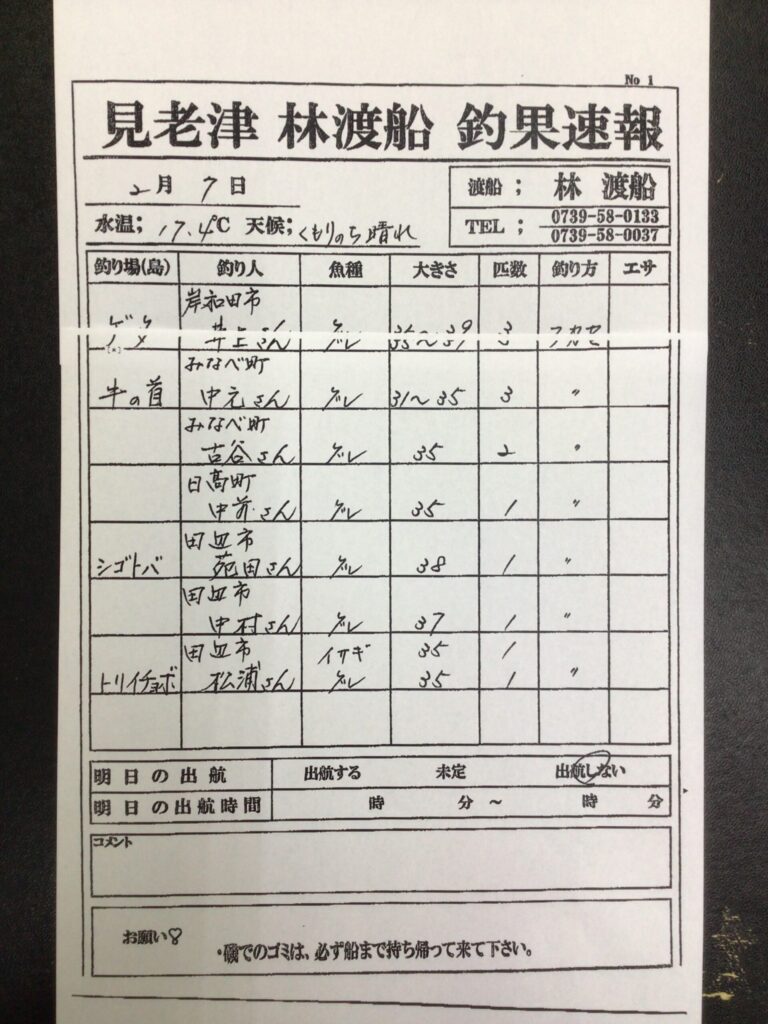 No 1
見老津 林渡船 釣果速報
2月 7日
渡船； 林 渡船
水温； 17.4℃ 天候； くもりのち晴れ
TEL； 0739-58-0133
0739-58-0037
釣り場(島) 釣り人 魚種 大きさ 匹数 釣り方 エサ
岸和田市
ゲタ 井上さん グレ 35〜39 3 フカセ
みなべ町
牛の首 中元さん グレ 31〜35 3 〃
みなべ町
古谷さん グレ 35 2 〃
日高町
中前さん グレ 35 1 〃
田辺市
シゴトバ 苑田さん グレ 38 1 〃
田辺市
中村さん グレ 37 1 〃
田辺市 イサギ 35 1
トリイチョボ 松浦さん グレ 35 1 〃
明日の出航 出航する 未定 出航しない
明日の出航時間 時 分 〜 時 分
コメント
お願い♡
・磯でのゴミは、必ず船まで持ち帰って来て下さい。